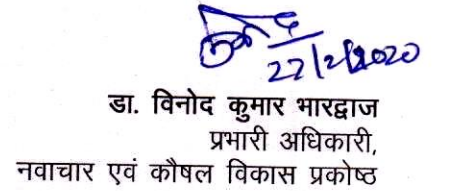 22/2/2020
डा. विनोद कुमार भारद्वाज
प्रभारी अधिकारी,
नवाचार एवं कौषल विकास प्रकोष्ठ